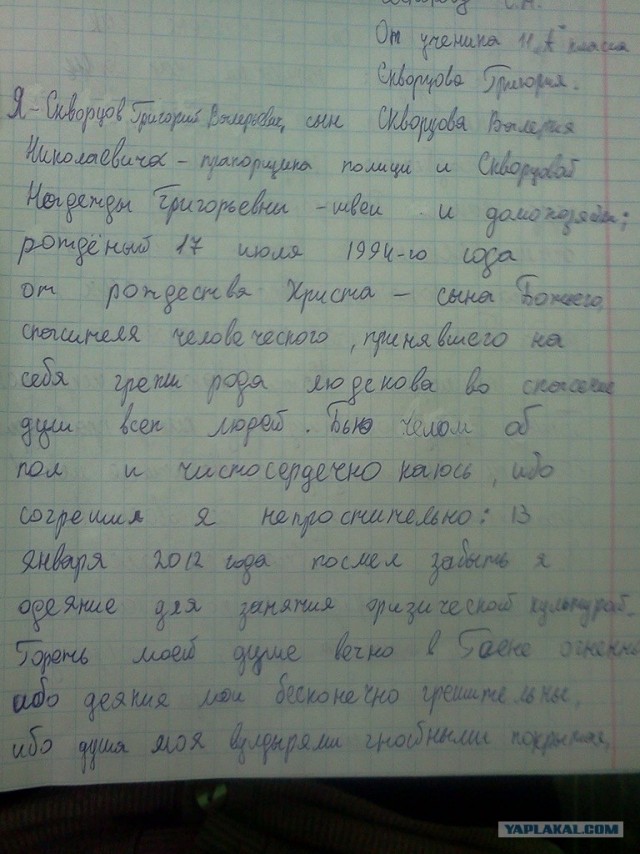 От ученика 11 „А" класса
Скворцова Григория.
Я – Скворцов Григорий Валерьевич, сын Скворцова Валерия
Николаевича – прапорщика полици и Скворцовой
Надежды Григорьевны – швеи и домохозяйки;
рождёный 17 июля 1994-го года
от рождества Христа – сына Божьего,
спасителя человеческого, принявшего на
себя грехи рода людскова во спасение
душ всех людей. Бью челом об
пол и чистосердечно каюсь, ибо
согрешил я непростительно: 13
января 2012 года посмел забыть я
одеяние для занятия физической культурой.
Гореть моей душе вечно в Гаене огненной
ибо деяния мои бесконечно грешительны,
ибо душа моя вулдырями гнобными покрытая,
YAPLAKAL.COM